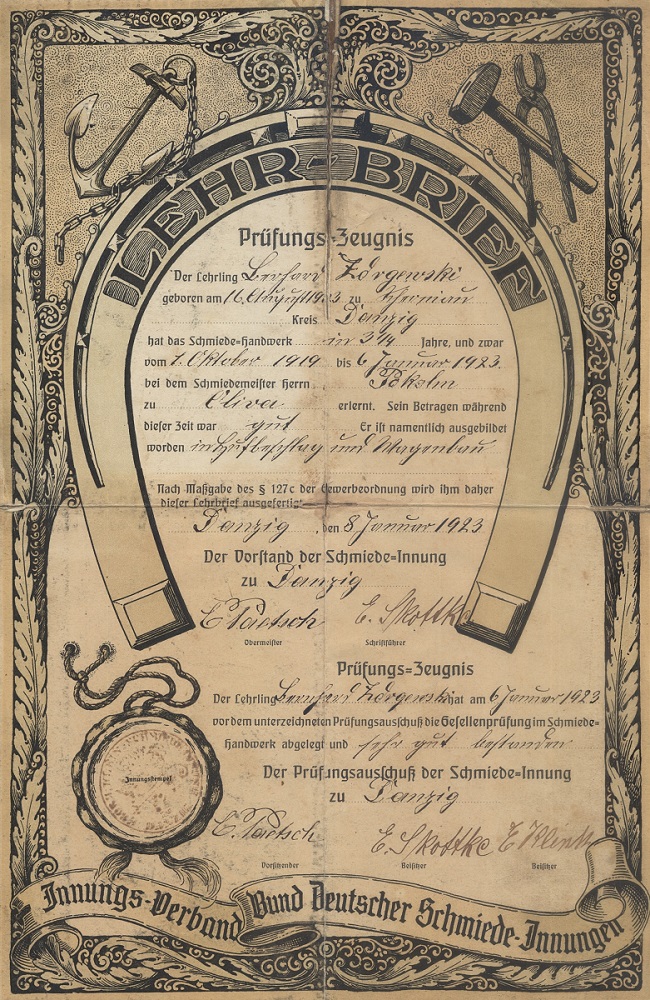 LEHR-BRIEF
Prüfungs-Zeugnis
Der Lehrling Berhard Zörgewski
geboren am 16. August 1903 zu
Kreis Danzig
hat das Schmiede-Handwerk in 3 1/4 Jahre, und zwar
vom 1. Oktober 1919 bis 6 Januar 1923.
bei dem Schmiedemeister Herrn
zu Oliva erlernt. Sein Betragen während
dieser Zeit war gut Er ist namentlich ausgebildet
worden in Hufbeschlag und Wagenbau
Nach Maßgabe des § 127c der Gewerbeordnung wird ihm daher
dieser Lehrbrief ausgefertigt
Danzig, den 8 Januar 1923.
Der Vorstand der Schmiede-Innung
zu Danzig
E. Skottke
Obermeister Schriftführer
Prüfungs-Zeugnis
Der Lehrling Bernhard Zörgewski hat am 6 Januar 1923
vor dem unterzeichneten Prüfungsausschuß die Gesellenprüfung im Schmiede-
Handwerk abgelegt und sehr gut bestanden
Der Prüfungsausschuß der Schmiede-Innung
zu Danzig
Innungsstempel
E. Skottke
Vorsitzender Beisitzer Beisitzer
Innungs-Verband Bund Deutscher Schmiede-Innungen